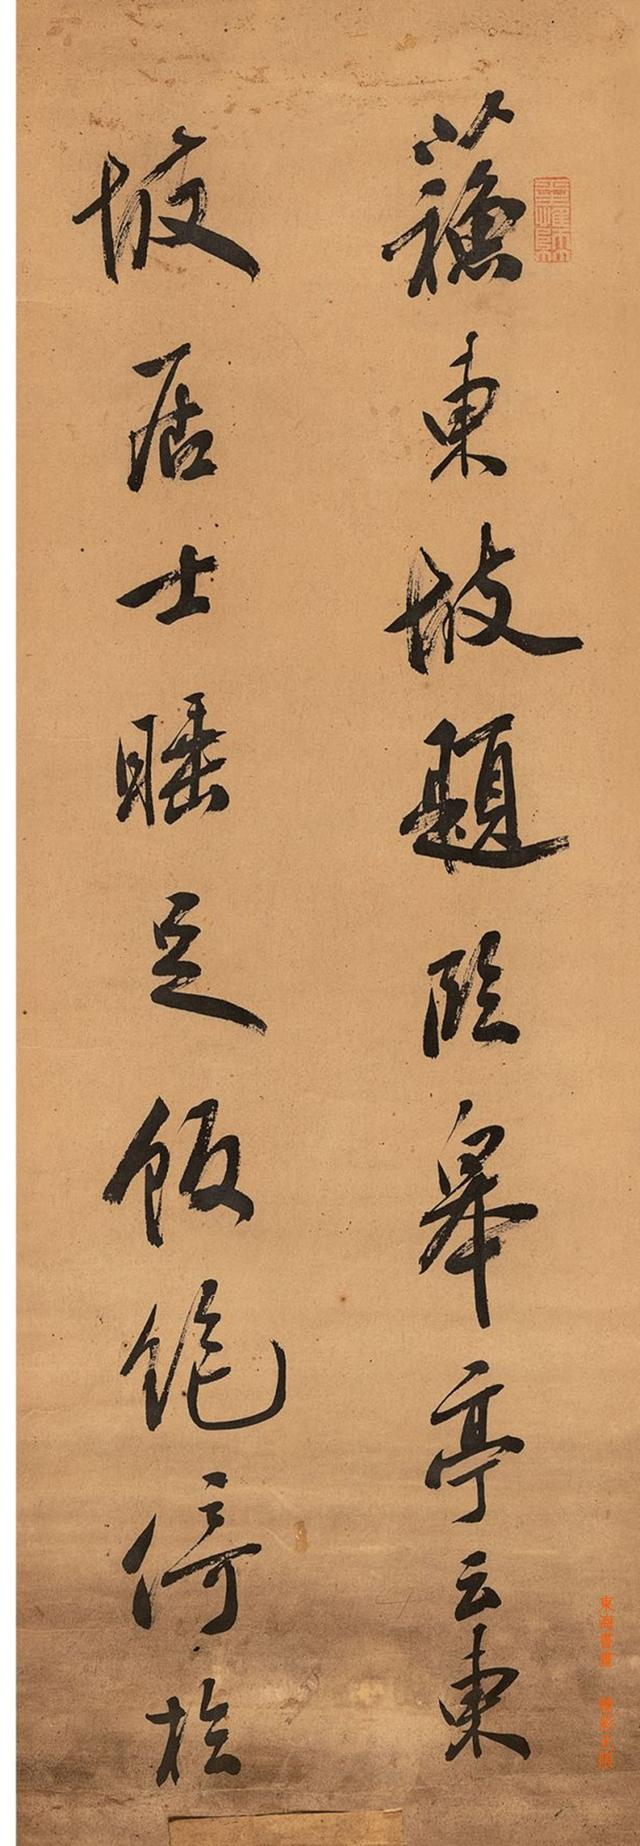 蘇東坡題臨皋亭云東
坡居士睡足飯飽倚於